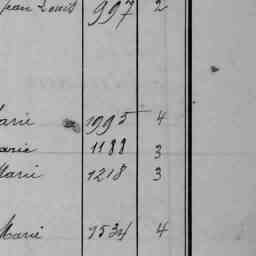 Jean Louis 997 2
Marie 1995 4
Marie 1188 3
Marie 1218 3
Marie 1534 4